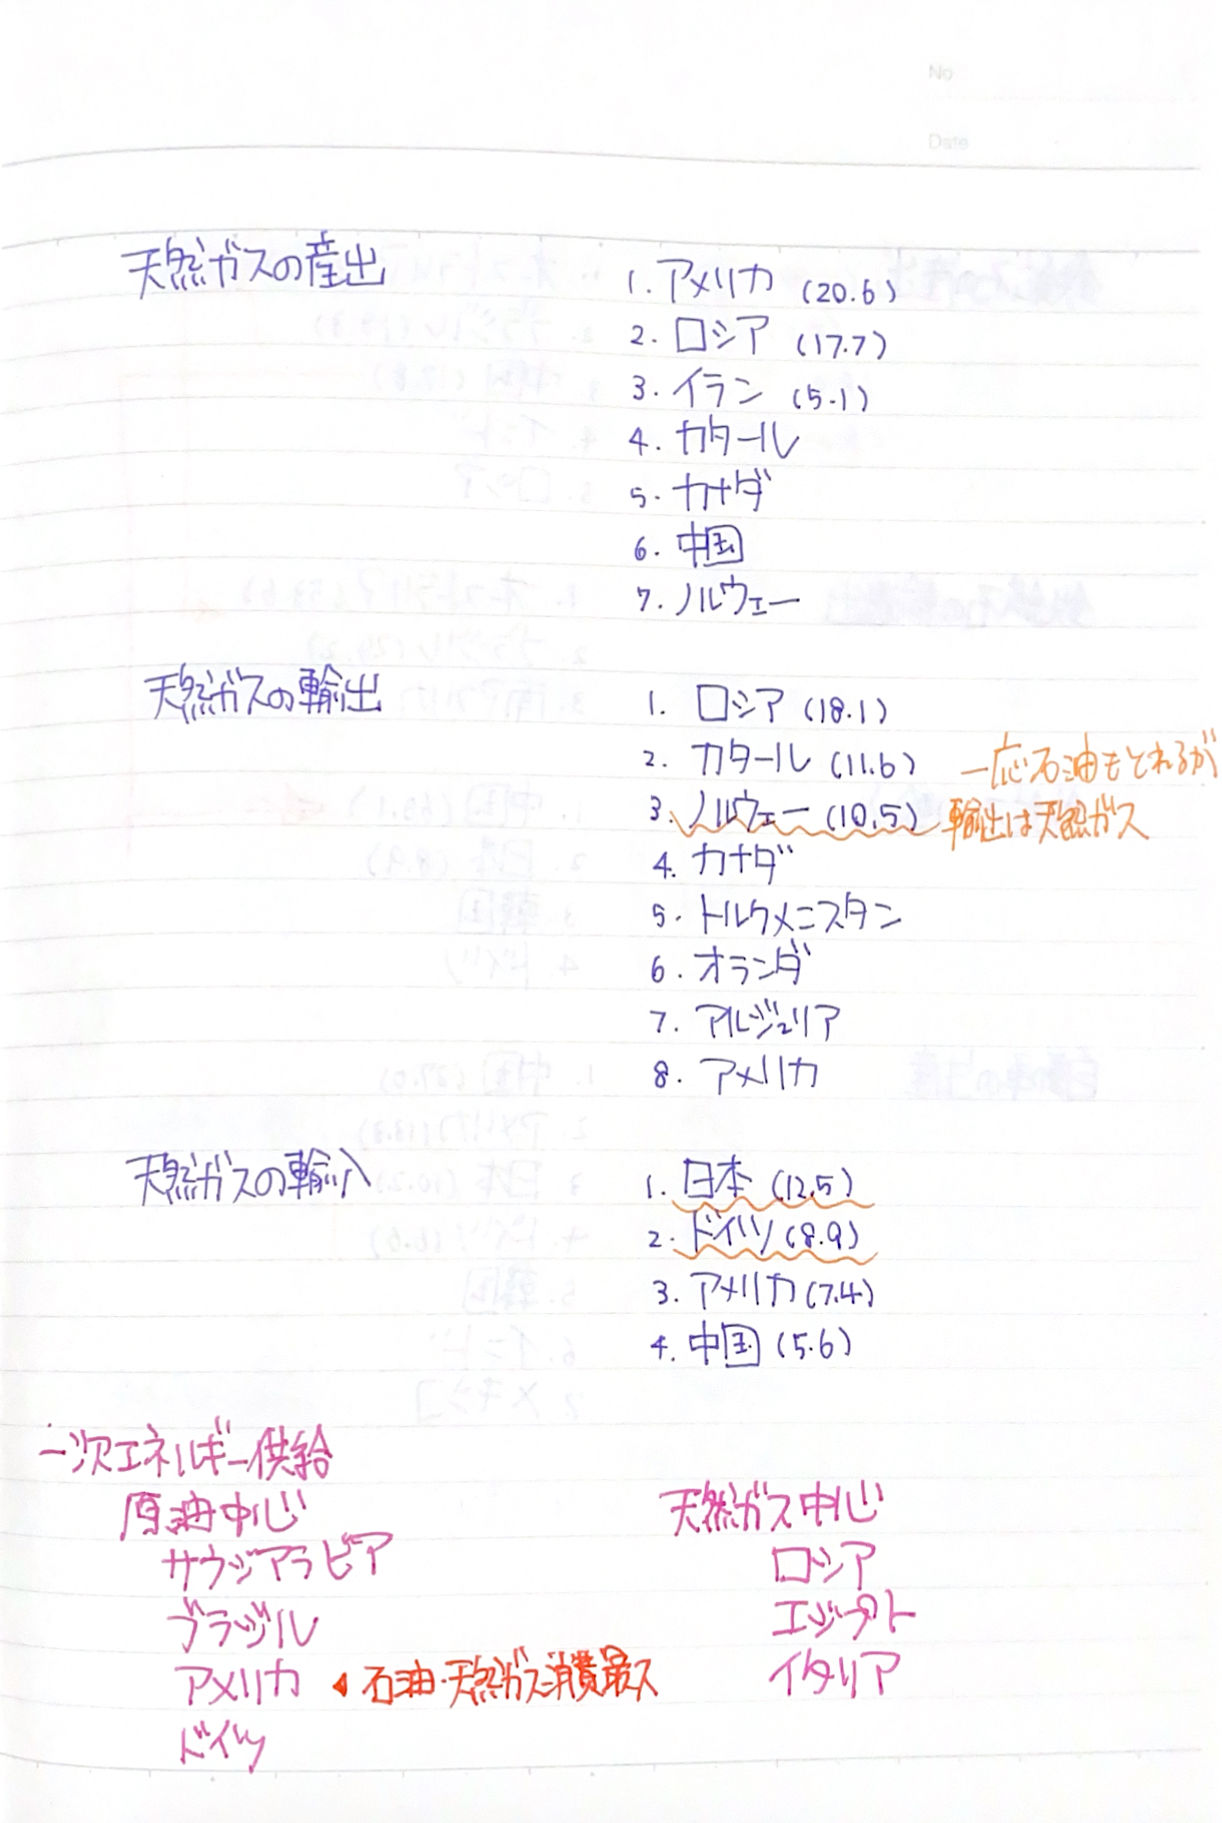 No
Date
天然ガスの産出
1. アメリカ (20.6)
2. ロシア (17.7)
3. イラン (5.1)
4. カタール
5. カナダ
6. 中国
7. ノルウェー
天然ガスの輸出
1. ロシア (18.1)
2. カタール (11.6) 一応石油もとれるが
3. ノルウェー (10.5) 輸出は天然ガス
4. カナダ
5. トルクメニスタン
6. オランダ
7. アルジェリア
8. アメリカ
天然ガスの輸入
1. 日本 (12.5)
2. ドイツ (8.9)
3. アメリカ (7.4)
4. 中国 (5.6)
一次エネルギー供給
原油中心
サウジアラビア
ブラジル
アメリカ ◀ 石油・天然ガス消費最大
ドイツ
天然ガス中心
ロシア
エジプト
イタリア